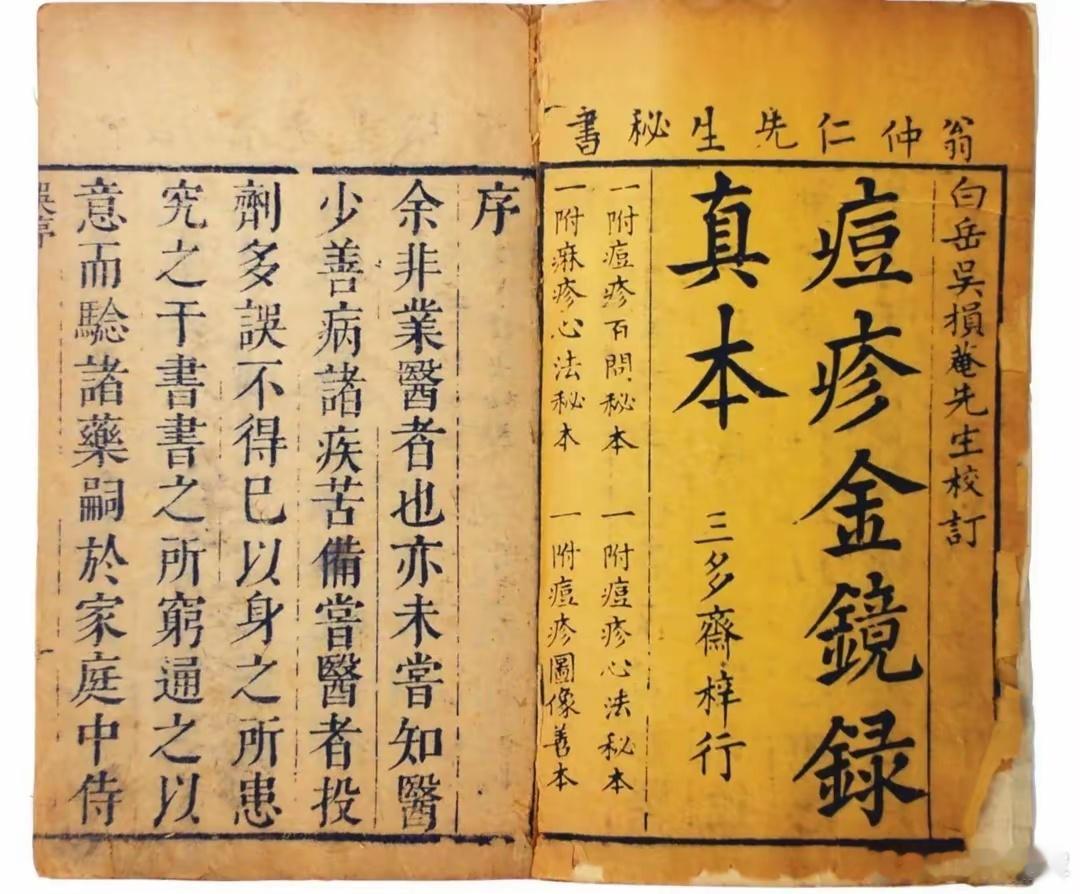 翁仲仁先生秘書
白岳吳損菴先生校訂
痘疹金鏡録
真本
三多齋梓行
一附痘疹百問秘本
一附痘疹心法秘本
一附麻疹心法秘本
一附痘疹圖像善本
序
余非業醫者也亦未嘗知醫
少善病諸疾苦備嘗醫者投
劑多誤不得已以身之所患
究之于書書之所窮通之以
意而驗諸藥嗣於家庭中侍